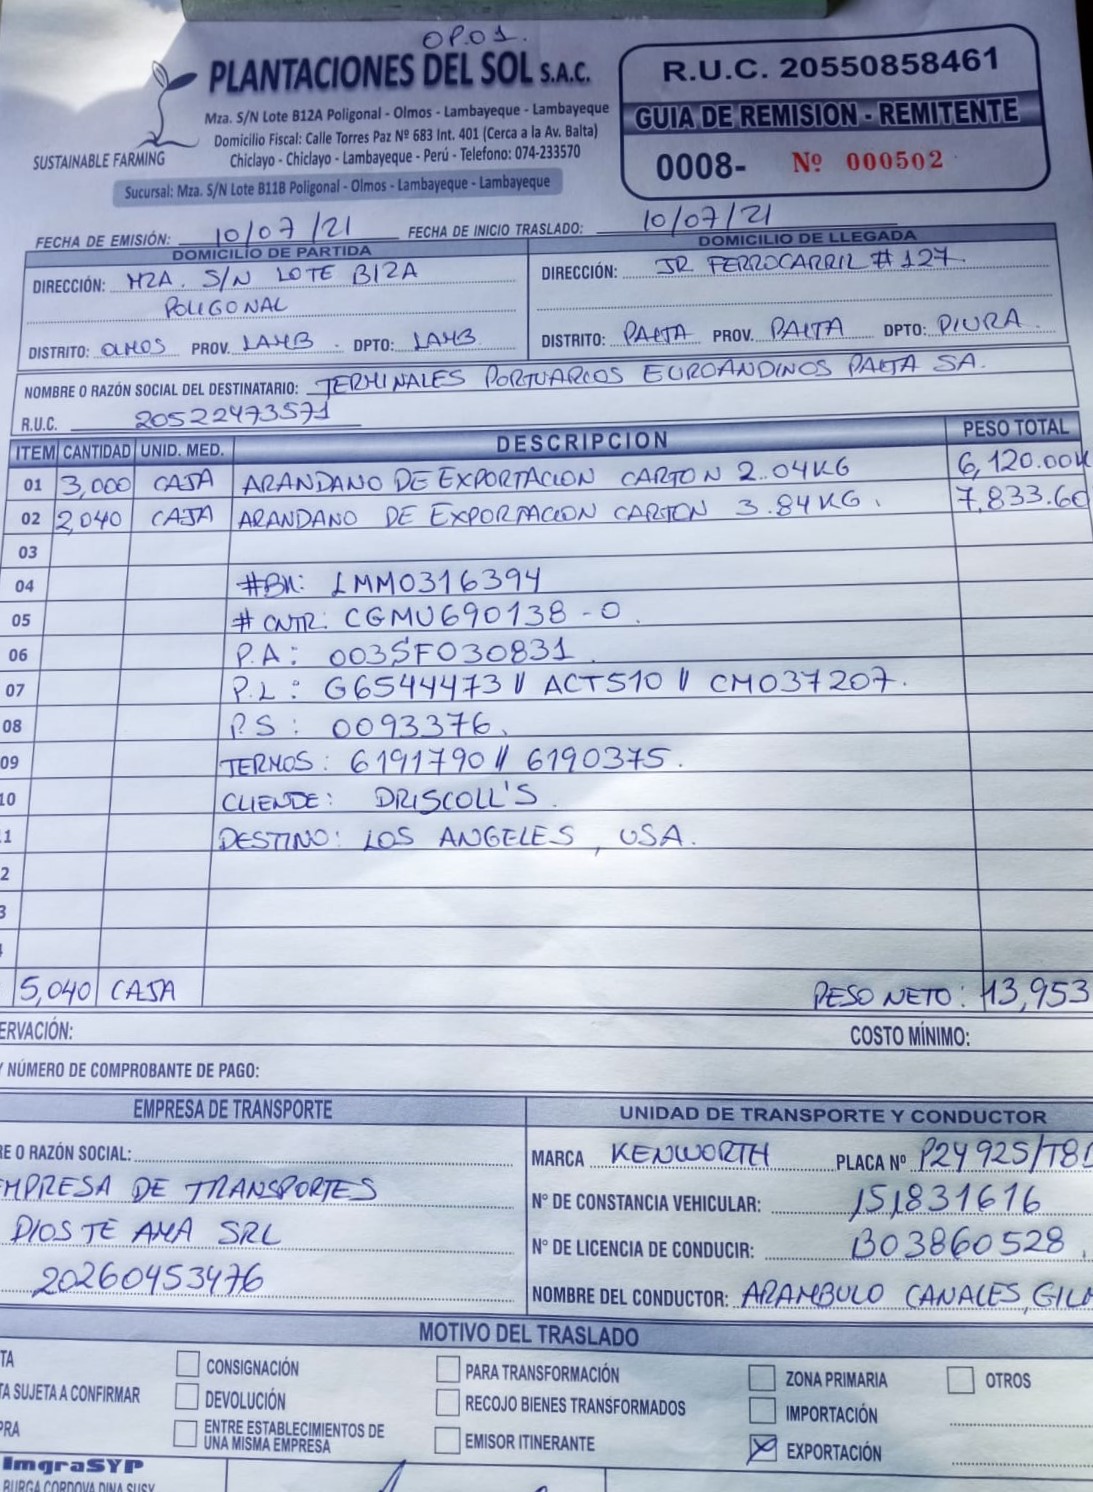 OP.01.
PLANTACIONES DEL SOL S.A.C.
Mza. S/N Lote B12A Poligonal - Olmos - Lambayeque - Lambayeque
Domicilio Fiscal: Calle Torres Paz Nº 683 Int. 401 (Cerca a la Av. Balta)
Chiclayo - Chiclayo - Lambayeque - Perú - Telefono: 074-233570
SUSTAINABLE FARMING
Sucursal: Mza. S/N Lote B11B Poligonal - Olmos - Lambayeque - Lambayeque
R.U.C. 20550858461
GUIA DE REMISION - REMITENTE
0008- Nº 000502
FECHA DE EMISIÓN: 10/07/21 FECHA DE INICIO TRASLADO: 10/07/21
DOMICILIO DE PARTIDA
DIRECCIÓN: MZA. S/N LOTE B12A
POLIGONAL
DISTRITO: OLMOS PROV. LAMB. DPTO: LAMB
DOMICILIO DE LLEGADA
DIRECCIÓN: JR FERROCARRIL #127.
DISTRITO: PAITA PROV. PAITA DPTO: PIURA.
NOMBRE O RAZÓN SOCIAL DEL DESTINATARIO: TERMINALES PORTUARIOS EUROANDINOS PAITA SA.
R.U.C. 20522473571
ITEM CANTIDAD UNID. MED. DESCRIPCION PESO TOTAL
01 3,000 CAJA ARANDANO DE EXPORTACION CARTON 2.04KG 6,120.00K
02 2,040 CAJA ARANDANO DE EXPORTACION CARTON 3.84KG. 7,833.60
03
04 #BK: LMM0316394
05 # CNTR: CGMU690138-0.
06 P.A: 003SF030831.
07 P.L: G6544473 // ACT510 // CM037207.
08 P.S: 0093376.
09 TERMOS: 6191790 // 6190375.
10 CLIENDE: DRISCOLL'S.
1 DESTINO: LOS ANGELES, USA.
2
3
5,040 CAJA PESO NETO: 13,953
ERVACIÓN: COSTO MÍNIMO:
Y NÚMERO DE COMPROBANTE DE PAGO:
EMPRESA DE TRANSPORTE
RE O RAZÓN SOCIAL:
MPRESA DE TRANSPORTES
DIOS TE AMA SRL
20260453476
UNIDAD DE TRANSPORTE Y CONDUCTOR
MARCA KENWORTH PLACA Nº P2Y925/T8D
Nº DE CONSTANCIA VEHICULAR: 151831616
Nº DE LICENCIA DE CONDUCIR: B03860528.
NOMBRE DEL CONDUCTOR: ARAMBULO CANALES, GIL
MOTIVO DEL TRASLADO
TA CONSIGNACIÓN PARA TRANSFORMACIÓN ZONA PRIMARIA OTROS
TA SUJETA A CONFIRMAR DEVOLUCIÓN RECOJO BIENES TRANSFORMADOS IMPORTACIÓN
PRA ENTRE ESTABLECIMIENTOS DE UNA MISMA EMPRESA EMISOR ITINERANTE EXPORTACIÓN
ImgraSYP
BURGA CORDOVA DINA SUSY